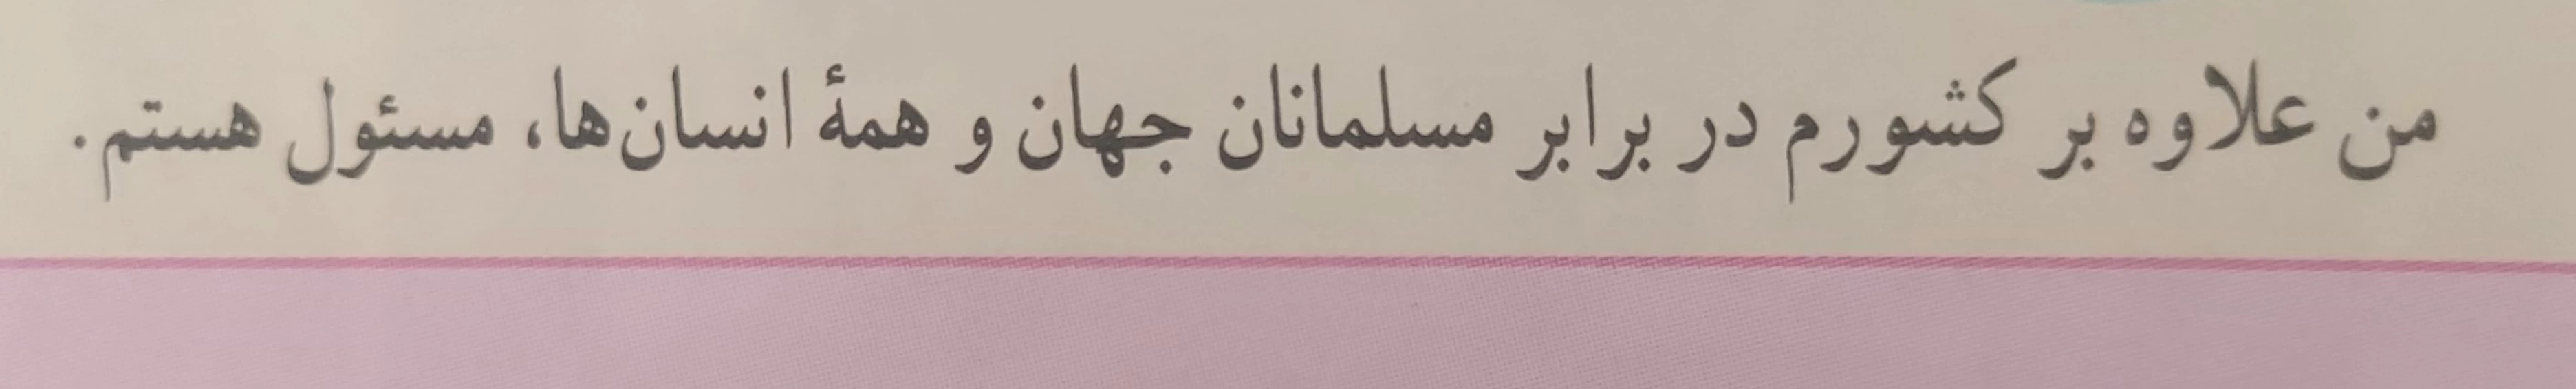 من علاوه بر کشورم در برابر مسلمانان جهان و همهٔ انسان‌ها، مسئول هستم.